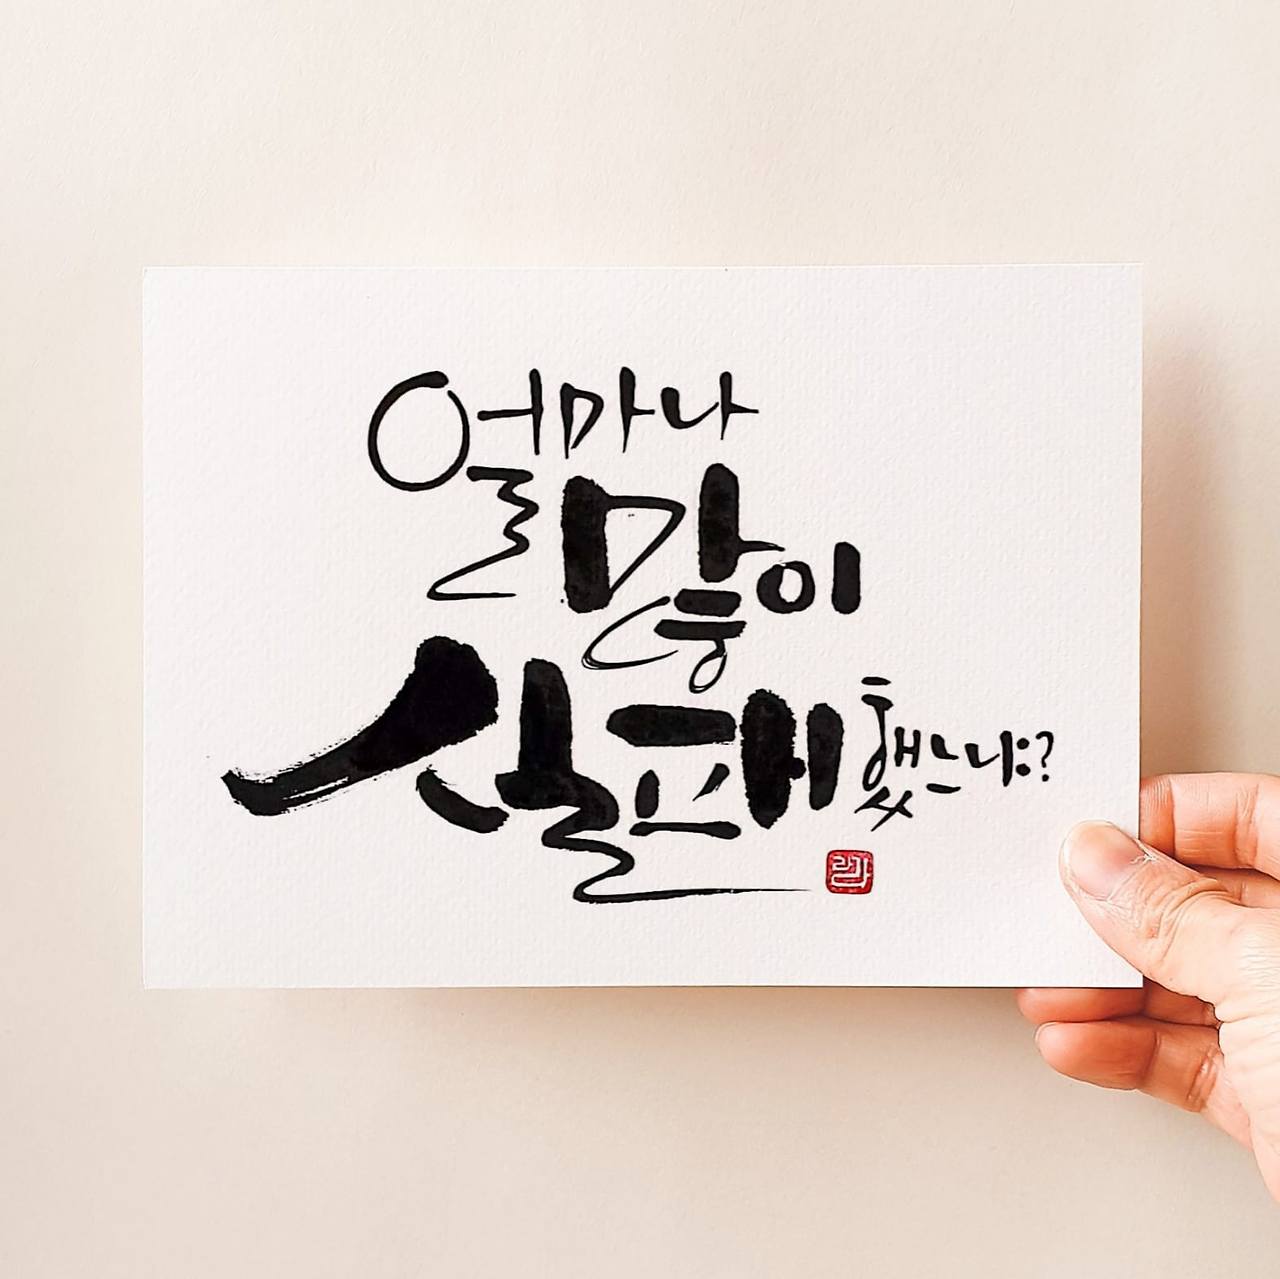 얼마나
많이
실패했느냐?